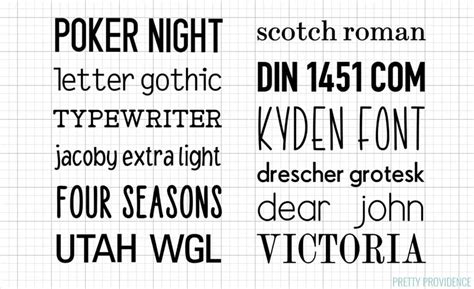 POKER NIGHT
letter gothic
TYPEWRITER
jacoby extra light
FOUR SEASONS
UTAH WGL
scotch roman
DIN 1451 COM
KYDEN FONT
drescher grotesk
dear john
VICTORIA
PRETTY PROVIDENCE